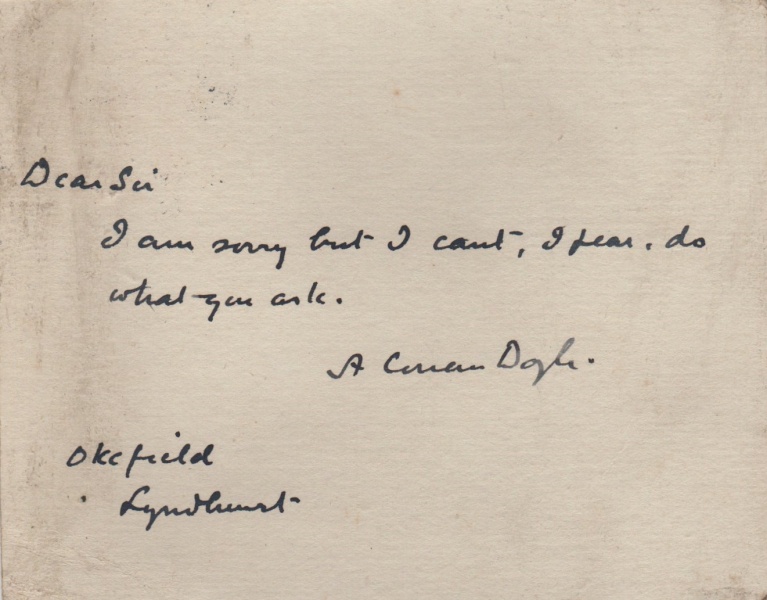 Dear Sir
I am sorry but I cant, I fear, do
what you ask.
A Conan Doyle.
Okefield
Lyndhurst